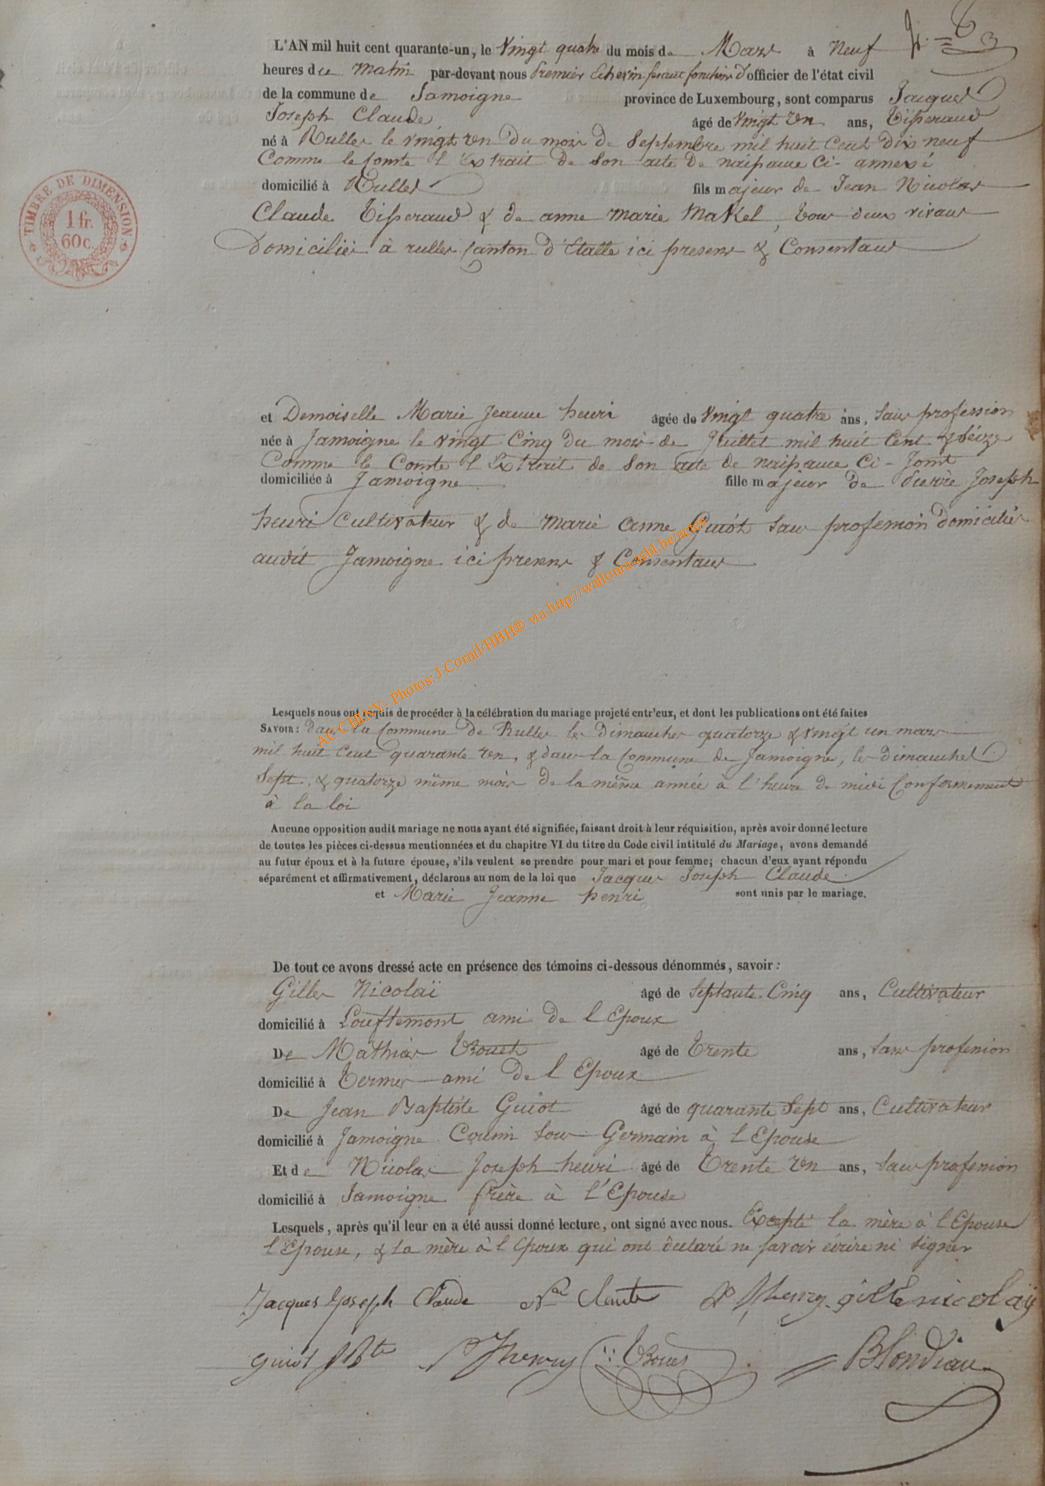 L'AN mil huit cent quarante-un, le Vingt quatre du mois de Mars à Neuf
heures du matin par-devant nous Premier Echevin fesant fonctions d'officier de l'état civil
de la commune de Jamoigne province de Luxembourg, sont comparus Jacques
Joseph Claude âgé de Vingt un ans, Tisserand
né à Rulles le vingt un du mois de Septembre mil huit Cent dix neuf
Comme le Comte l'Extrait de Son acte de naissance Ci-annexé
domicilié à Rulles fils majeur de Jean Nicolas
Claude Tisserand & de anne marie Makel, tous deux vivans
Domiciliés à rulles Canton d'Etalle ici presens & Consentans
et Demoiselle Marie Jeanne henri âgée de Vingt quatre ans, Sans profession
née à Jamoigne le vingt Cinq du mois de Juillet mil huit Cent & Seize
Comme le Comte l'Extrait de Son acte de naissance Ci-Joint
domiciliée à Jamoigne fille majeur de Pierre Joseph
henri Cultivateur & de marie anne Guiot Sans profession domiciliés
audit Jamoigne ici presens & Consentans
Lesquels nous ont requis de procéder à la célébration du mariage projeté entr'eux, et dont les publications ont été faites
SAVOIR: dans la Commune de Rulles les dimanches quatorze & vingt un mars
mil huit Cent quarante un, & dans la Commune de Jamoigne, les dimanches
Sept & quatorze même mois de la même année à l'heure de midi Conformement
à la loi
Aucune opposition audit mariage ne nous ayant été signifiée, faisant droit à leur réquisition, après avoir donné lecture
de toutes les pièces ci-dessus mentionnées et du chapitre VI du titre du Code civil intitulé du Mariage, avons demandé
au futur époux et à la future épouse, s'ils veulent se prendre pour mari et pour femme; chacun d'eux ayant répondu
séparément et affirmativement, déclarons au nom de la loi que Jacques Joseph Claude
et Marie Jeanne henri sont unis par le mariage.
De tout ce avons dressé acte en présence des témoins ci-dessous dénommés, savoir :
Gilles Nicolaï âgé de Septante Cinq ans, Cultivateur
domicilié à Louftémont ami de l'Epoux
De Mathias âgé de Trente ans, Sans profession
domicilié à Termes ami de l'Epoux
De Jean Baptiste Guiot âgé de quarante Sept ans, Cultivateur
domicilié à Jamoigne Cousin Sous Germain à l'Epouse
Et de Nicolas Joseph henri âgé de Trente un ans, Sans profession
domicilié à Jamoigne frère à l'Epouse
Lesquels, après qu'il leur en a été aussi donné lecture, ont signé avec nous. Excepté la mère à l'Epouse
l'Epouse, & la mère à l'Epoux qui ont déclaré ne savoir écrire ni Signer
Jacques Joseph Claude Claude P J henry gille nicolaÿ
guiot JBte J henry Blondiau
TIMBRE DE DIMENSION
1 fr.
60c.